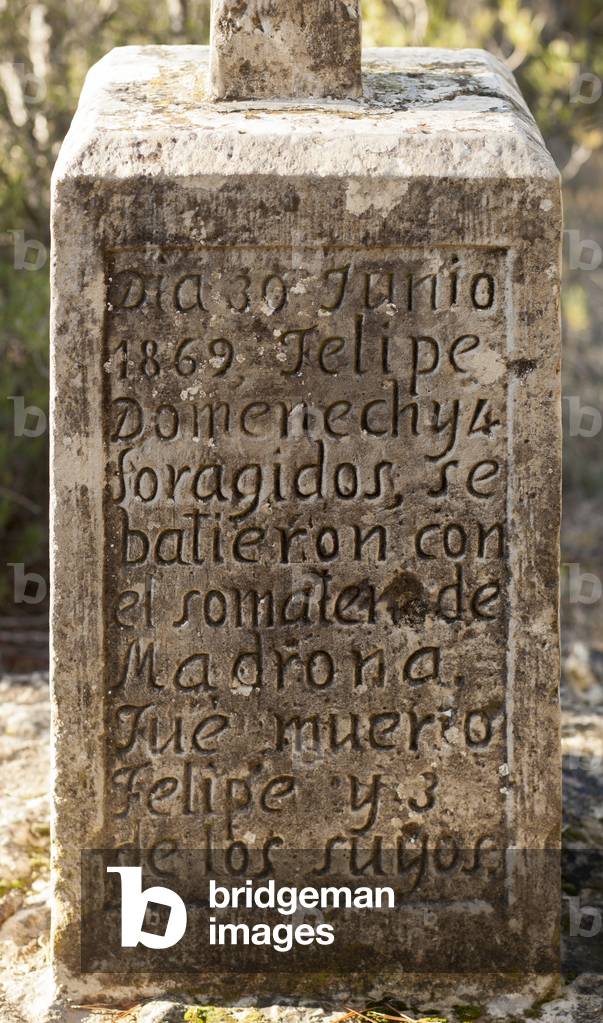 Dia 30 Junio
1869, Felipe
Domenech y 4
foragidos, se
batieron con
el somaten de
Madrona.
Fué muerto
Felipe y 3
de los suyos.
bridgeman
images